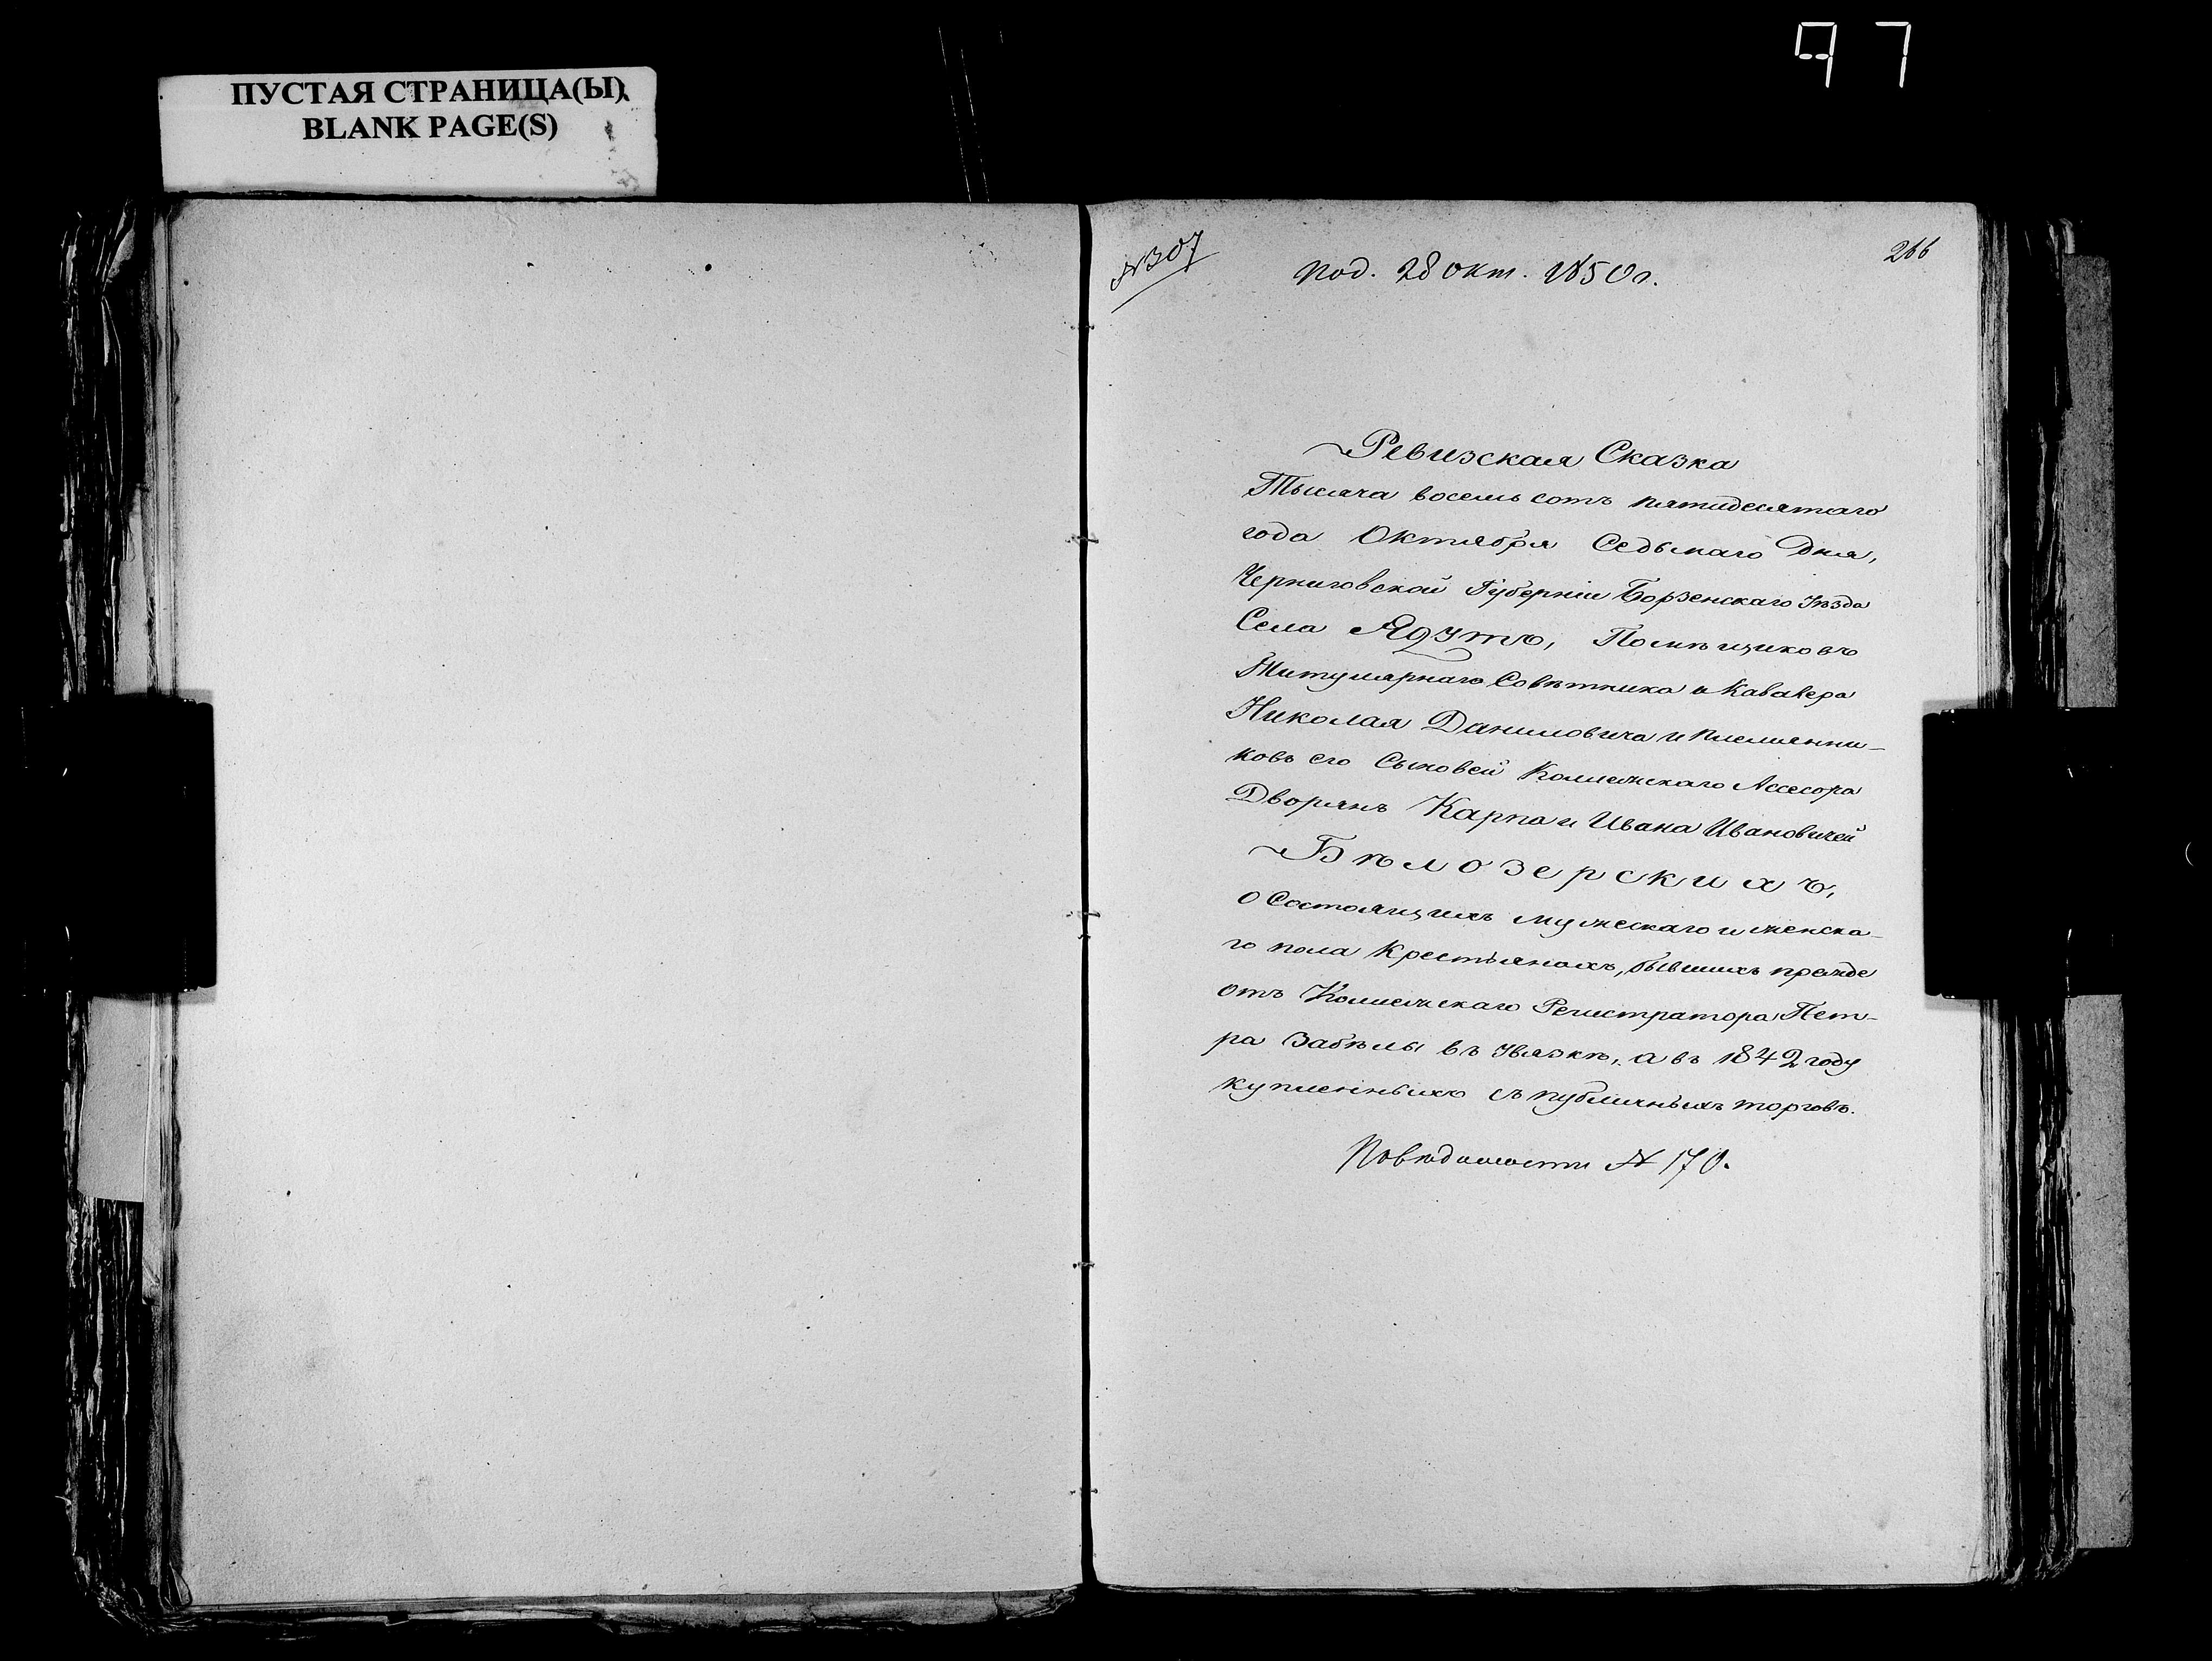 97
ПУСТАЯ СТРАНИЦА(Ы)
BLANK PAGE(S)
№307
под. 28 окт. 1850 г.
266
Ревизская Сказка
Тысяча восемь сотъ пятидесятаго
года Октября Седьмаго Дня,
Черниговской Губерніи Борзенскаго Уѣзда
Села Ядутъ, Помѣщиковъ
Титулярнаго Совѣтника и Кавалера
Николая Даниловича и племянни-
ковъ его Сыновей Коллежскаго Ассесора
Дворянъ Карпа и Ивана Ивановичей
Бѣлозерскихъ,
о Состоящихъ мужескаго и женска-
го пола Крестьянахъ, бывшихъ прежде
отъ Коллежскаго Регистратора Пет-
ра Забѣлы въ Увязкѣ, а въ 1842 году
купленныхъ съ публичныхъ торговъ.
По вѣдомости № 170.